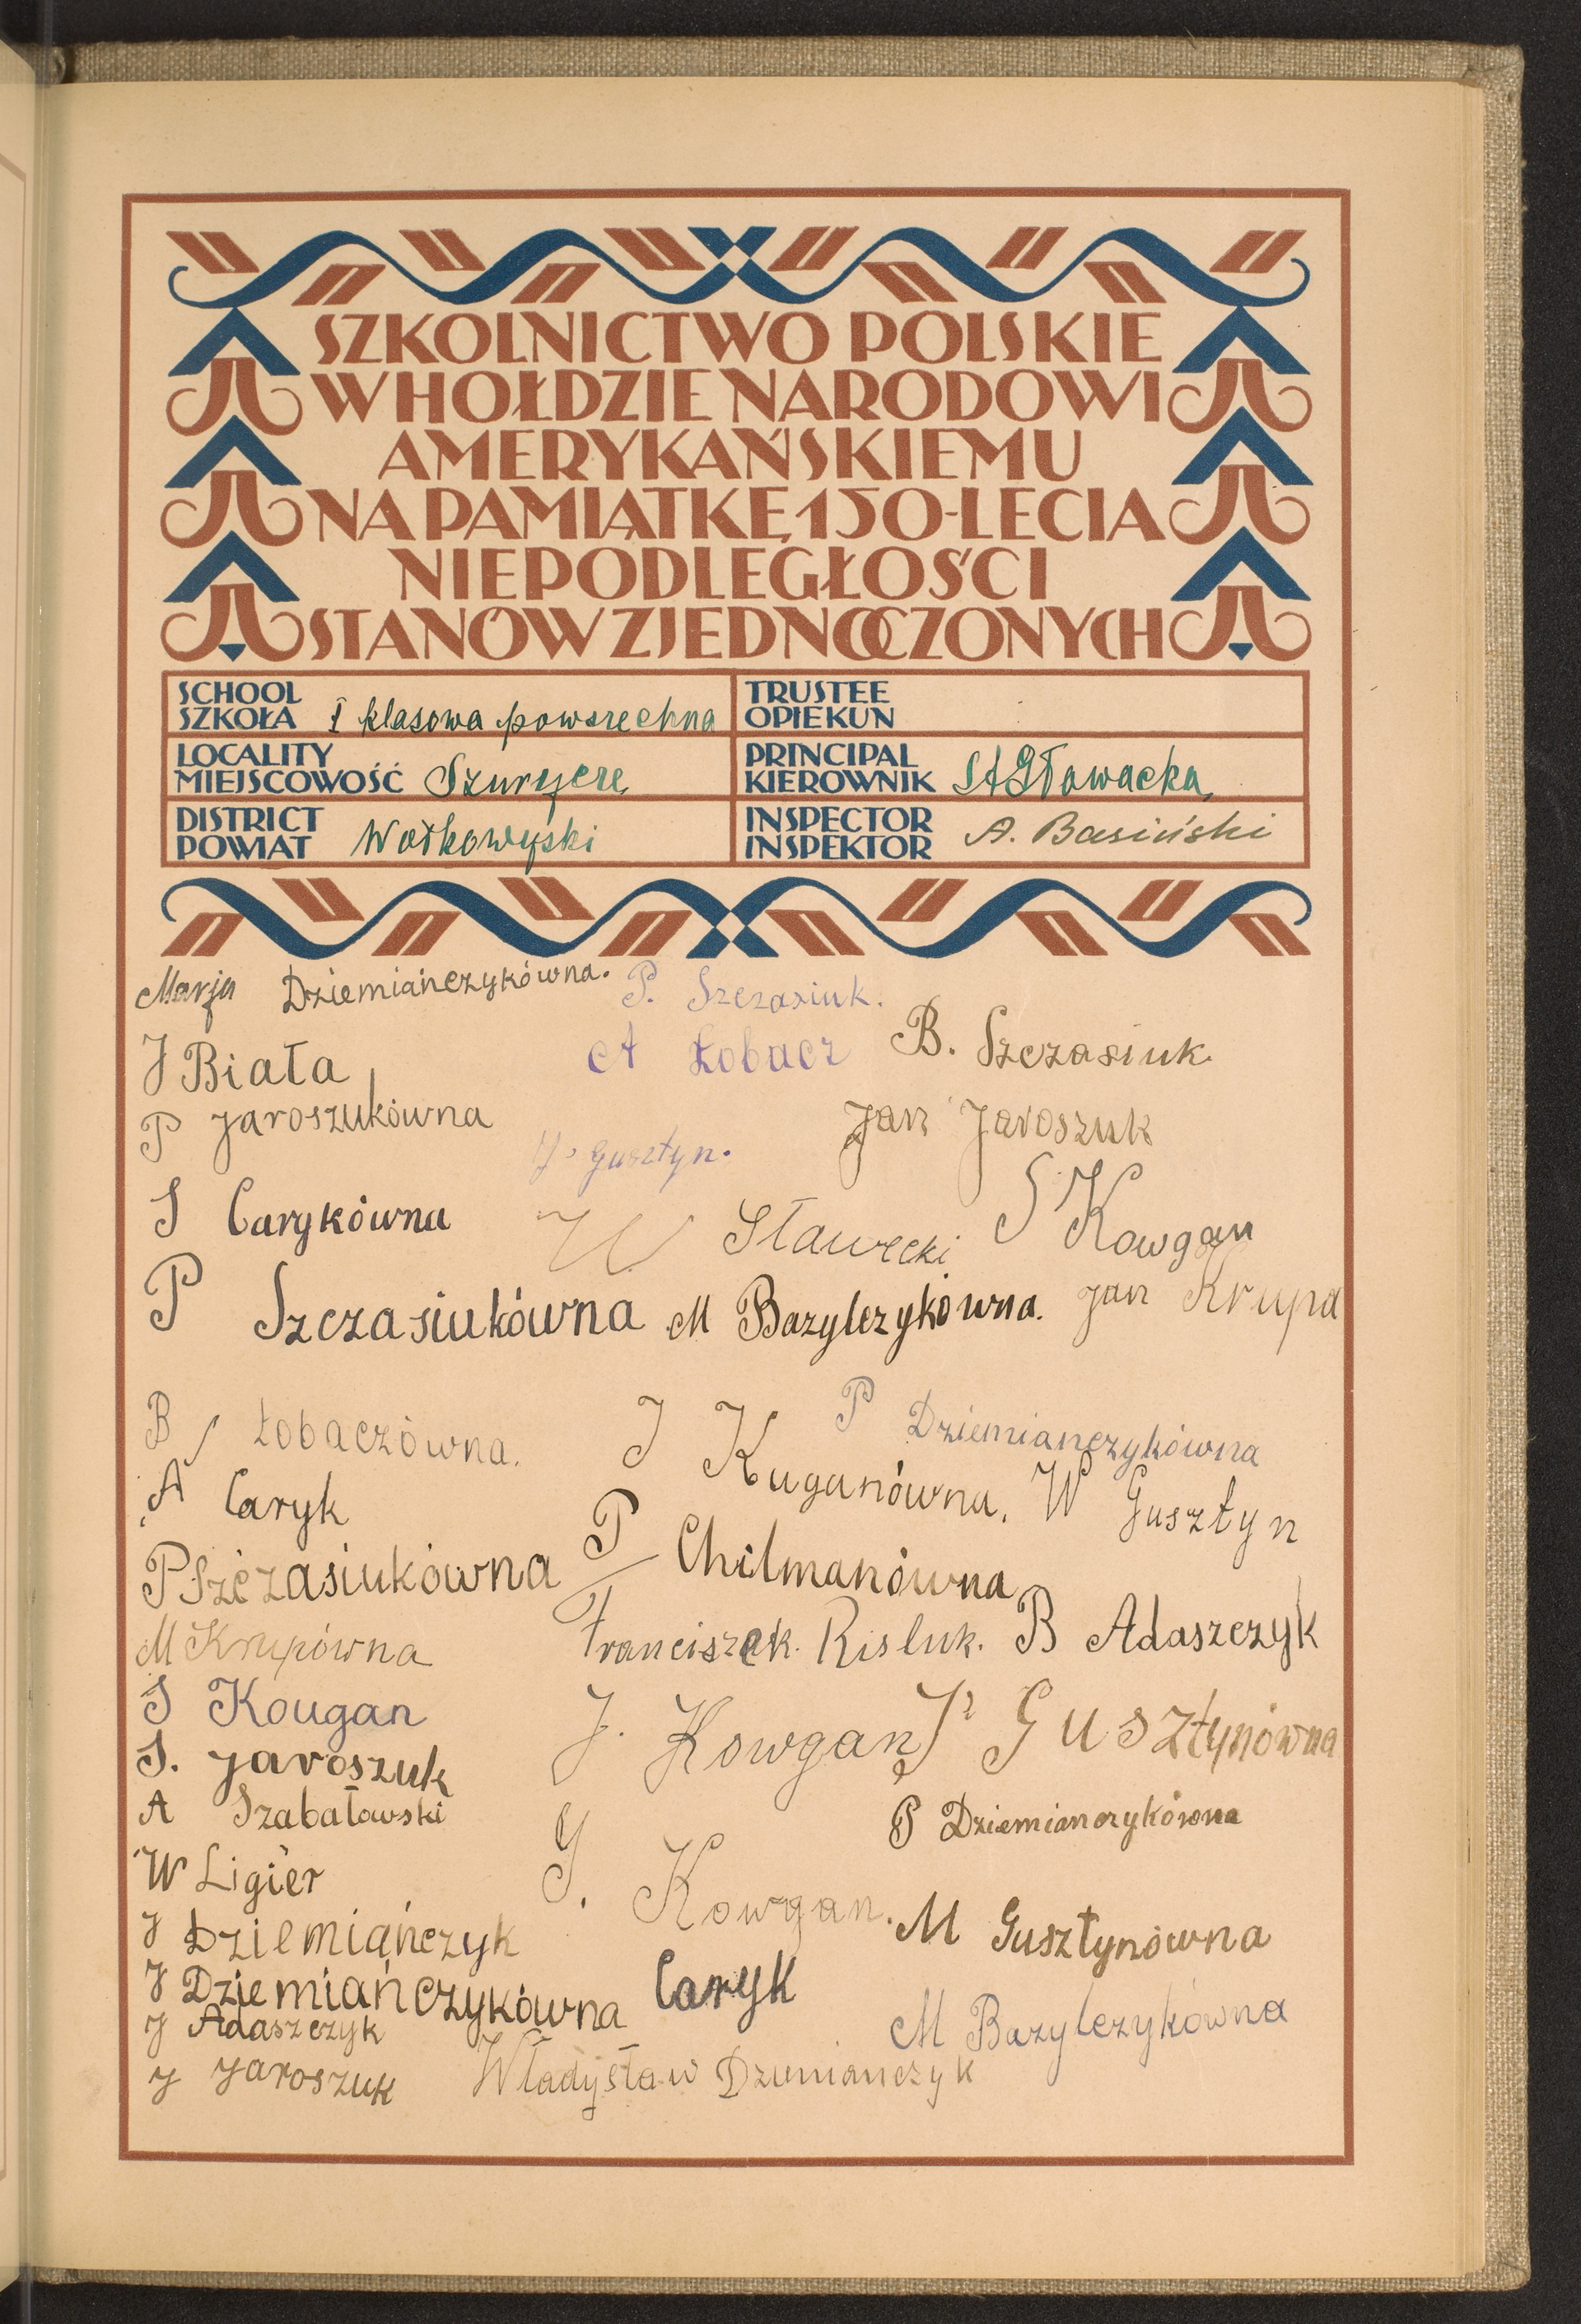 SZKOLNICTWO POLSKIE
W HOŁDZIE NARODOWI
AMERYKAŃSKIEMU
NA PAMIĄTKĘ 150-LECIA
NIEPODLEGŁOŚCI
STANÓW ZJEDNOCZONYCH
SCHOOL
SZKOŁA I klasowa powszechna
TRUSTEE
OPIEKUN
LOCALITY
MIEJSCOWOŚĆ Szurycze
PRINCIPAL
KIEROWNIK St Głowacka
DISTRICT
POWIAT Wołkowyski
INSPECTOR
INSPEKTOR A. Basiński
Marja Dziemiańczykówna. P. Szczasiuk.
J Biała A Łobacz B. Szczasiuk
P Jaroszukówna J. Gusztyn. Jan Jaroszuk
S Carykówna W Sławecki S Kowgan
P Szczasiukówna M Bazylczykówna. Jan Krupa
B Łobaczówna. J Kuganówna. P Dziemianczykówna
A Caryk W Gusztyn
P Szczasiukówna P Chilmanówna
M Krupówna Franciszek. Risluk. B Adaszczyk
S Kougan J. Kowgan J Gusztynówna
S. Jaroszuk
A Szabałowski P Dziemianczykówna
W Ligier J. Kowgan.
J Dziemiańczyk M Gusztynówna
J Dziemiańczykówna Caryk
J Adaszczyk M Bazylczykówna
J Jaroszuk Władysław Dziemianczyk